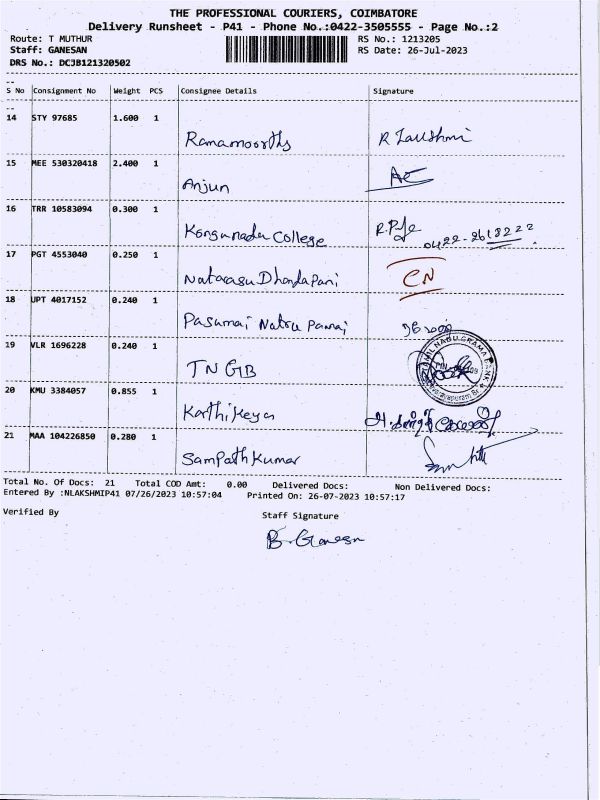 THE PROFESSIONAL COURIERS, COIMBATORE
Delivery Runsheet - P41 - Phone No.:0422-3505555 - Page No.:2
Route: T MUTHUR RS No.: 1213205
Staff: GANESAN RS Date: 26-Jul-2023
DRS No.: DCJB121320502
S No Consignment No Weight PCS Consignee Details Signature
14 STY 97685 1.600 1
Ramamoorthy R Laxshmi
15 MEE 530320418 2.400 1
Anjun
16 TRR 10583094 0.300 1
Kongunadu College 0422-2618222
17 PGT 4553040 0.250 1
Natarasu Dhandapani CN
18 UPT 4017152 0.240 1
Pasumai Natru
19 VLR 1696228 0.240 1
TNGB TAMIL NADU GRAMA BANK
20 KMU 3384057 0.855 1
Karthikeyan
21 MAA 104226850 0.280 1
Sampath Kumar
Total No. Of Docs: 21 Total COD Amt: 0.00 Delivered Docs: Non Delivered Docs:
Entered By :NLAKSHMIP41 07/26/2023 10:57:04 Printed On: 26-07-2023 10:57:17
Verified By Staff Signature
B. Ganesan